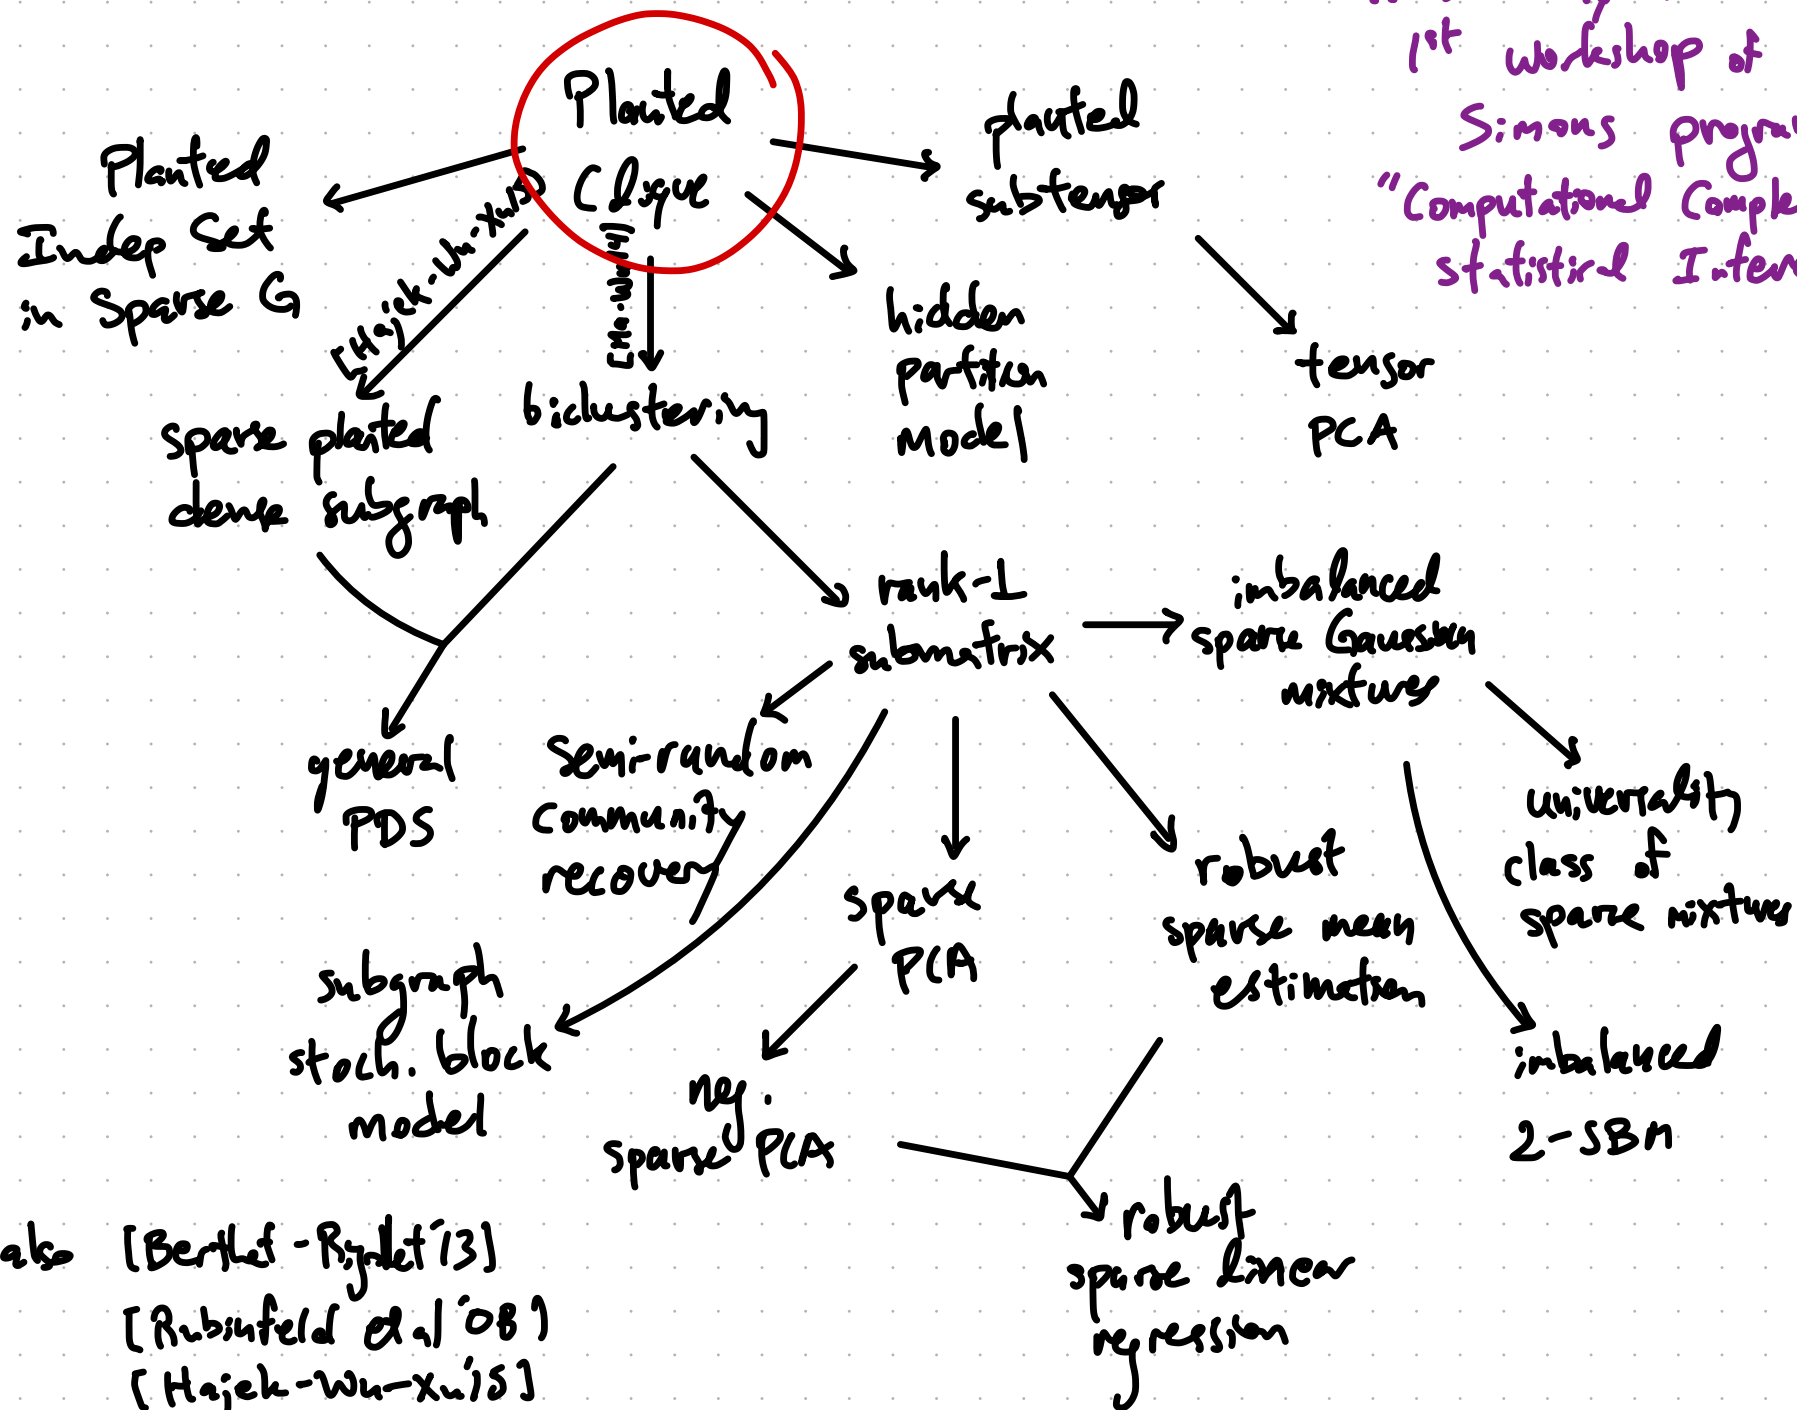 1st workshop of
Simons
"Computational
statistical
Planted
Clique
planted
subtensor
Planted
Indep Set
in Sparse G
[Hajek-Wu-Xu'15]
[Ma-Wu
hidden
partition
model
tensor
PCA
sparse planted
dense subgraph
biclustering
rank-1
submatrix
imbalanced
sparse Gaussian
mixtures
general
PDS
semi-random
community
recovery
universality
class of
sparse mixtures
sparse
PCA
robust
sparse mean
estimation
subgraph
stoch. block
model
neg.
sparse PCA
imbalanced
2-SBM
robust
sparse linear
regression
also [Berthet-Rigollet'13]
[Rubinfeld et al '08]
[Hajek-Wu-Xu'15]